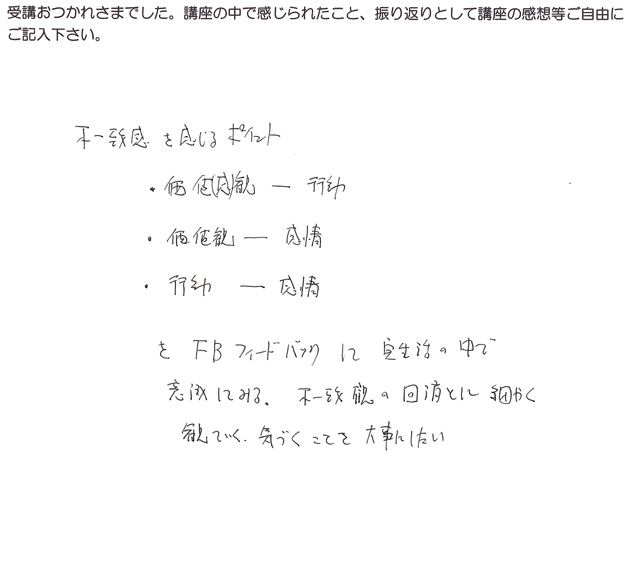 受講おつかれさまでした。講座の中で感じられたこと、振り返りとして講座の感想等ご自由に
ご記入下さい。
不一致感を感じるポイント
・価値(感)観 ― 行動
・価値観 ― 感情
・行動 ― 感情
を FB フィードバックに 実生活の中で
意識してみる。不一致観の回消とに 細かく
観ていく、気づくことを大事にしたい